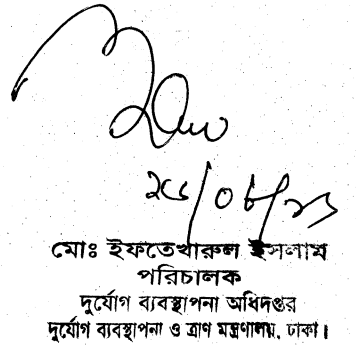 মোঃ ইফতেখারুল ইসলাম
পরিচালক
দুর্যোগ ব্যবস্থাপনা অধিদপ্তর
দুর্যোগ ব্যবস্থাপনা ও ত্রাণ মন্ত্রণালয়, ঢাকা।